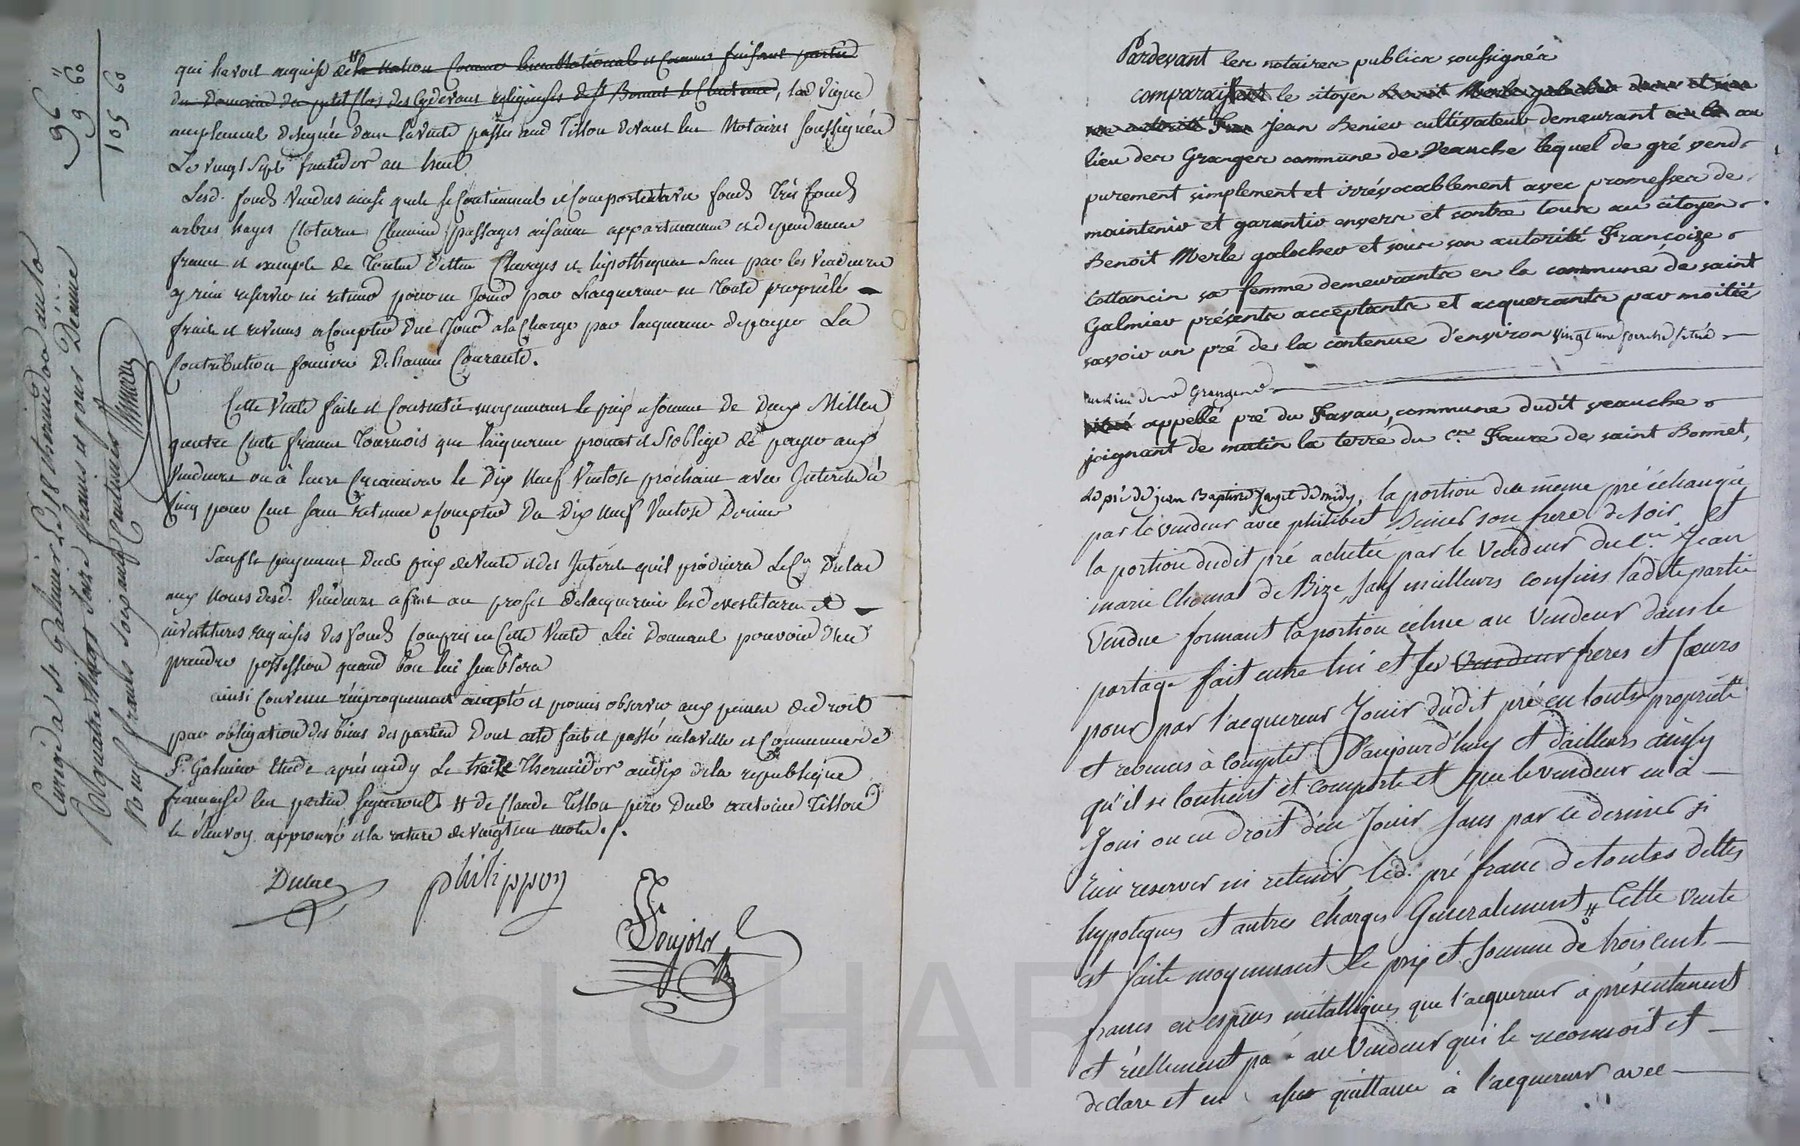 96 "
9 60
105 60
qui havoit acquise de la nation comme bien National et comme faisant partie
du Domaine du petit Clos des cydevant religieuses de St Bonnet le Chateau, lad vigne
amplement designée dans la vente passée aud Tissou devant les Notaires soussignés
Le vingt sept fructidor an huit
Lesd. fonds vendus ainsi quils se Contiennent et Comportent avec fonds Très fonds
arbres hayes Cloture Chemins passages aisance appartenance et dependance
francs et exempts de Toutes dettes Charges et hipotheques sans par les vendeurs
y rien reserver ni retenir pour en Jouir par Lacquereur en Toute propriété
fruits et revenus a Compter de ce Jour a la Charge par lacquereur de payer La
Contribution fonciere De Lannée Courante.
Cette Vente faite et Consentie moyennant le prix et somme De Deux Mille
quatre Cents francs Tournois que laquereur promet et Soblige de payer aux
vendeurs ou à leurs le Dix Neuf Ventose prochain avec Interets à
Cinq pour Cent sans retenue a Compter Du Dix Neuf Ventose Dernier
Sauf le payement Dud. prix de vente et des Interets quil produira Le Cn Dulac
aux Noms desd. Vendeurs a fait au profit De lacquereur les devestitures et
investitures requises des fonds Compris en Cette Vente Lui Donnant pouvoir d'en
prendre possession quand bon lui semblera
ainsi Convenu réciproquement accepté et promis observer aux peines de Droit
par obligation des biens des parties Dont acte fait et passé en la ville et Commune de
St Galmier Etude après midy Le treize Thermidor an dix de la republique
française les parties de Claude Tissou pere Dud antoine Tissou
le Renvoy approuvé et la rature de vingt un mots./.
Dulac philippon
Poujols
à St Galmier Le 18 thermidor an 10
francs et pour Décime
neuf francs soixante Centimes
Pardevant les notaires publics soussignés
comparaissent le citoyen Benoit Merle galocher
Jean Benier cultivateur demeurant au
lieu des Granges commune de veauche lequel de gré vend
purement simplement et irrévocablement avec promesses de
maintenir et garantir envers et contre tous au citoyen
Benoit Merle galocher et sous son autorité Françoize
Cottancin sa femme demeurants en la commune de saint
Galmier présents acceptants et acquerants par moitié
savoir un pré de la contenue d'environ vingt une situé
au lieu des Granges
situé appellé pré du Favau, commune dudit veauche
joignant de matin la terre du cen Faure de saint Bonnet,
Le pré de jean Baptiste de midy, la portion du même pré échangée
par le vendeur avec philibert Benier son frere de soir et
la portion dudit pré achetée par le vendeur du Cen Jean
marie Chomat de Bize, sauf meilleurs confins ladite partie
vendue formant la portion échue au vendeur dans le
partage fait entre lui et ses vendeur freres et sœurs
pour par l'acquereur Jouir dudit pré en toute propriété
et revenus à Compter d'aujourd'huy et d'ailleurs ainsy
qu'il se Contient et comporte et que le vendeur en a
Joui ou eu droit d'en Jouir sans par ce dernier si
rien reserver ni retenir led. pré franc de toutes dettes
hypoteques et autres charges Generalement. Cette vente
est faite moyennant le prix et somme de trois cent
francs en espèces métalliques, que l'acquereur a présentement
et réellement payé au vendeur qui le reconnoit et
declare et en a fait quittance à l'acquereur avec
Pascal CHAREYRON